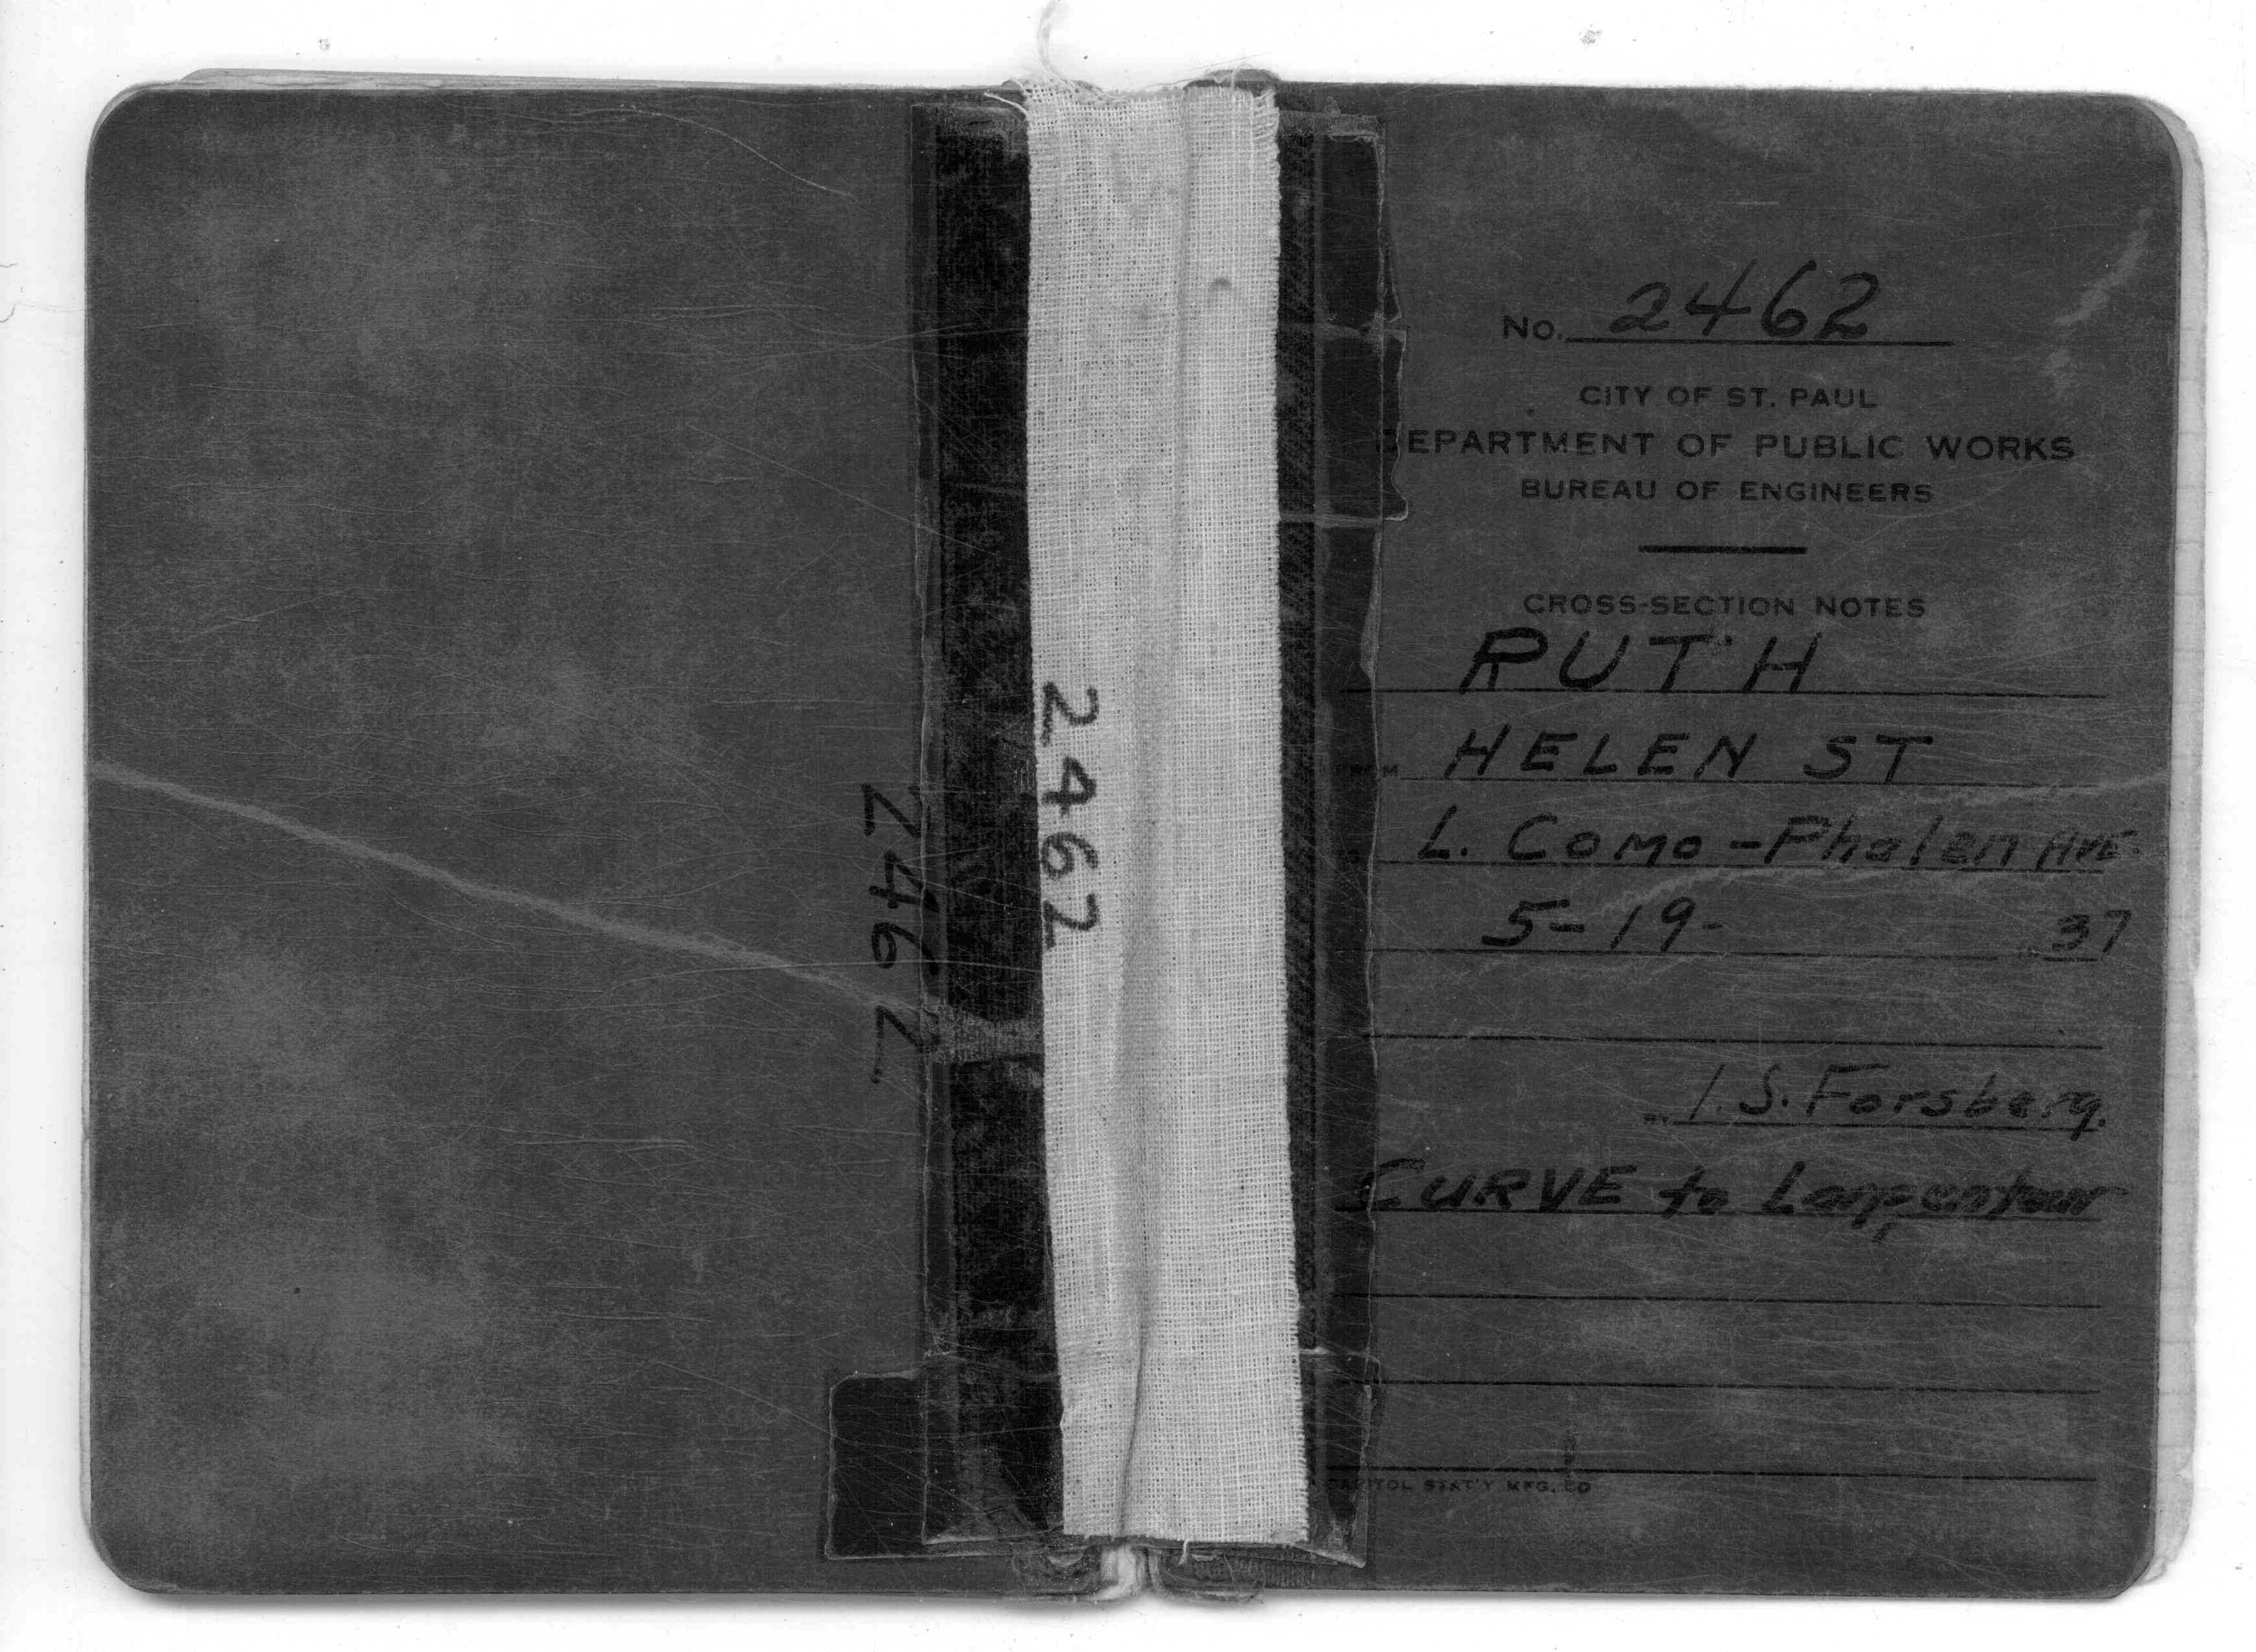 2462
2462
No. 2462
CITY OF ST. PAUL
DEPARTMENT OF PUBLIC WORKS
BUREAU OF ENGINEERS
CROSS-SECTION NOTES
RUTH
FROM HELEN ST
L. Como-Phalen AVE.
5-19- 37
BY I. S. Forsberg.
CURVE to Larpenteur
CAPITOL STAT'Y MFG. CO